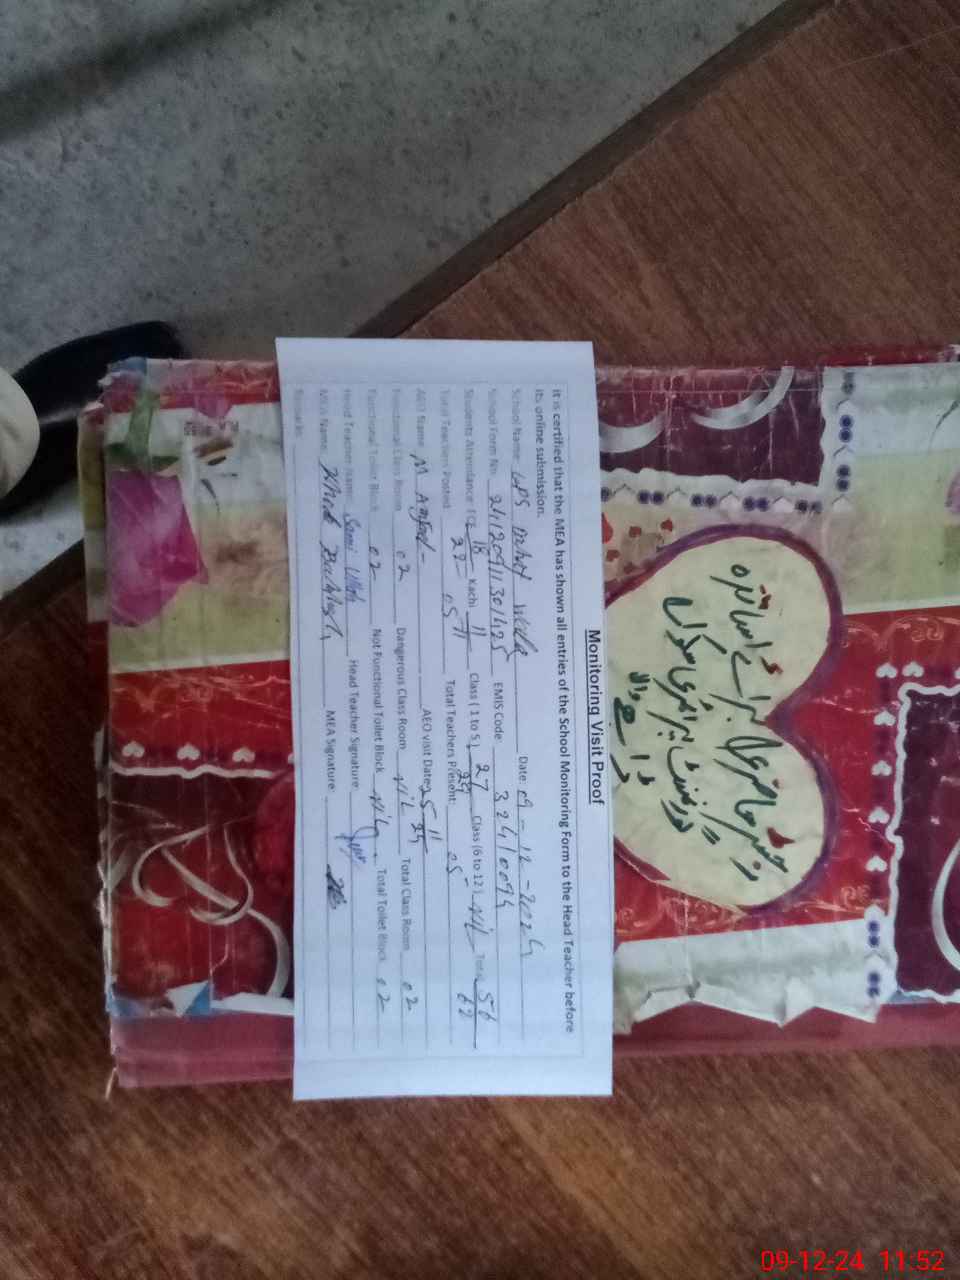 Monitoring Visit Proof
It is certified that the MEA has shown all entries of the School Monitoring Form to the Head Teacher before
its online submission.
School Name: GPS Date: 09-12-2024
School Form No. EMIS Code 32410094
Students Attendance ECE 18 Kachi 11 Class (1 to 5) 27 Class (6 to 12) Nil Total 56
62
Total Teachers Posted 05 Total Teachers Present: 05
AEO Name: M AEO visit Date: 25-11-24
Functional Class Room 02 Dangerous Class Room NiL Total Class Room 02
Functional Toilet Block 02 Not Functional Toilet Block NiL Total Toilet Block 02
Head Teacher Name: Sami Ullah Head Teacher Signature:
MEA Name: MEA Signature:
Remarks:
رجسٹر حاضری برائے اساتذہ
گورنمنٹ پرائمری سکول
والا
09-12-24 11:52